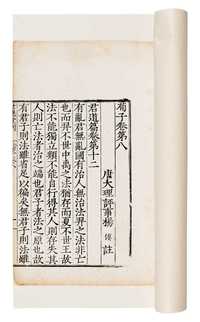 荀子卷第八
唐大理評事楊 倞 註
君道篇卷第十二
有亂君無亂國有治人無治法羿之法非亡
也而羿不世中禹之法猶存而夏不世王故
法不能獨立類不能自行得其人則存失其
人則亡法者治之端也君子者法之原也故
有君子則法雖省足以徧矣無君子則法雖